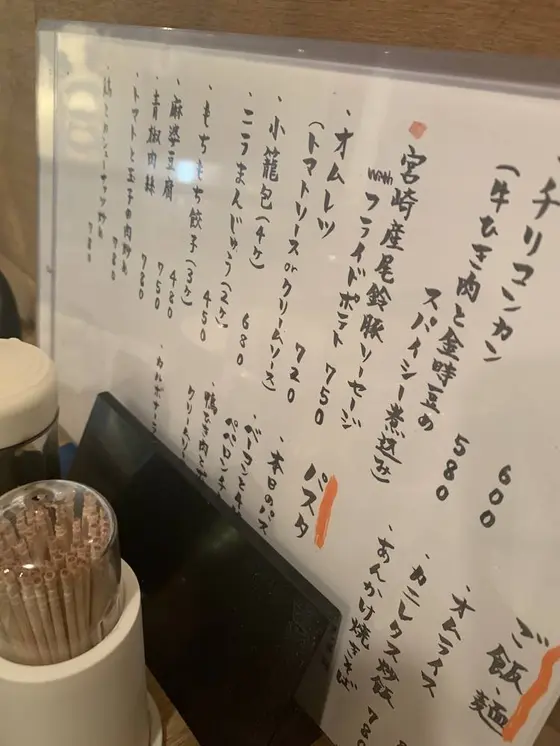 ・チリコンカン
(牛ひき肉と金時豆の
スパイシー煮込み)
600
580
宮崎産尾鈴豚ソーセージ
with フライドポテト 750
・オムレツ
(トマトソース or クリームソース)
720
・小籠包(4ヶ)
680
・ニラまんじゅう(2ヶ)
450
・もちもち餃子(3ヶ)
420
・麻婆豆腐
750
・青椒肉絲
780
・トマトと玉子の肉炒め
780
780
ご飯・麺
・オムライス
・カニレタス炒飯 780
・あんかけ焼きそば
パスタ
・本日のパス
・ベーコンと
ペペロンチ
・鴨ひき肉と
クリーム
・カルボナーラ